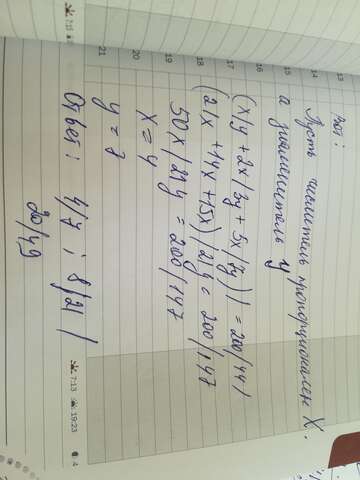 13
Вот:
14
Пусть числитель пропорционален X.
15
а знаменатель y
16
(x/y + 2x/3y + 5x/7y) | = 200/441
17
(21x + 14x + 15x) / 21y = 200/147
18
50x / 21y = 200/147
19
x = 4
20
y = 7
21
Ответ: 4/7 ; 8/21
20/49
7:13 19:23 4
7:15